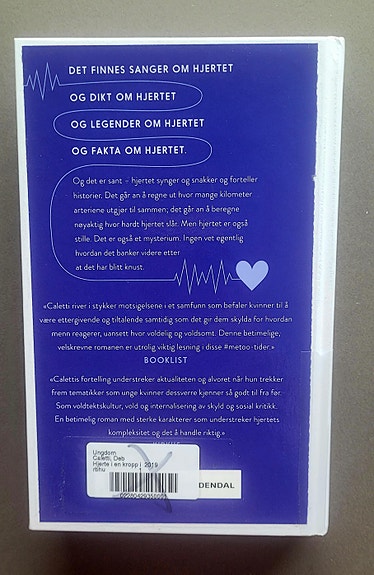 DET FINNES SANGER OM HJERTET
OG DIKT OM HJERTET
OG LEGENDER OM HJERTET
OG FAKTA OM HJERTET.
Og det er sant – hjertet synger og snakker og forteller
historier. Det går an å regne ut hvor mange kilometer
arteriene utgjør til sammen; det går an å beregne
nøyaktig hvor hardt hjertet slår. Men hjertet er også
stille. Det er også et mysterium. Ingen vet egentlig
hvordan det banker videre etter
at det har blitt knust.
«Caletti river i stykker motsigelsene i et samfunn som befaler kvinner til å
være ettergivende og tiltalende samtidig som det gir dem skylda for hvordan
menn reagerer, uansett hvor voldelig og voldsomt. Denne betimelige,
velskrevne romanen er utrolig viktig lesning i disse #metoo-tider.»
BOOKLIST
«Calettis fortelling understreker aktualiteten og alvoret når hun trekker
frem tematikker som unge kvinner dessverre kjenner så godt til fra før.
Som voldtektskultur, vold og internalisering av skyld og sosial kritikk.
En betimelig roman med sterke karakterer som understreker hjertets
kompleksitet og det å handle riktig.»
Ungdom
Caletti, Deb
Hjerte i en kropp i 2019
DENDAL